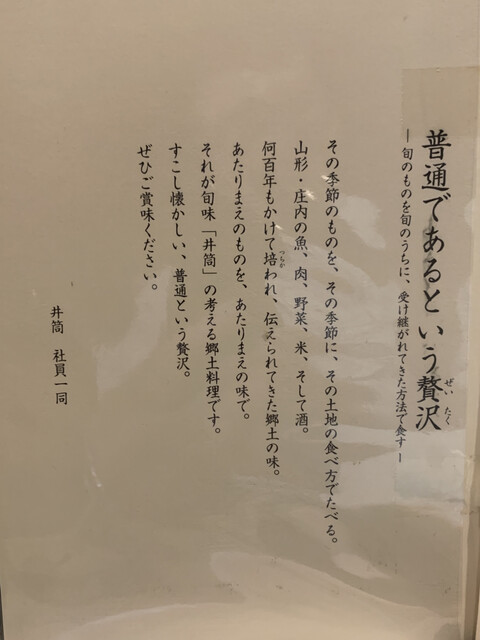 普通であるという贅沢
ぜいたく
― 旬のものを旬のうちに、受け継がれてきた方法で食す ―
その季節のものを、その季節に、その土地の食べ方でたべる。
山形・庄内の魚、肉、野菜、米、そして酒。
何百年もかけて培われ、伝えられてきた郷土の味。
つちか
あたりまえのものを、あたりまえの味で。
それが旬味「井筒」の考える郷土料理です。
すこし懐かしい、普通という贅沢。
ぜひご賞味ください。
井筒 社員一同